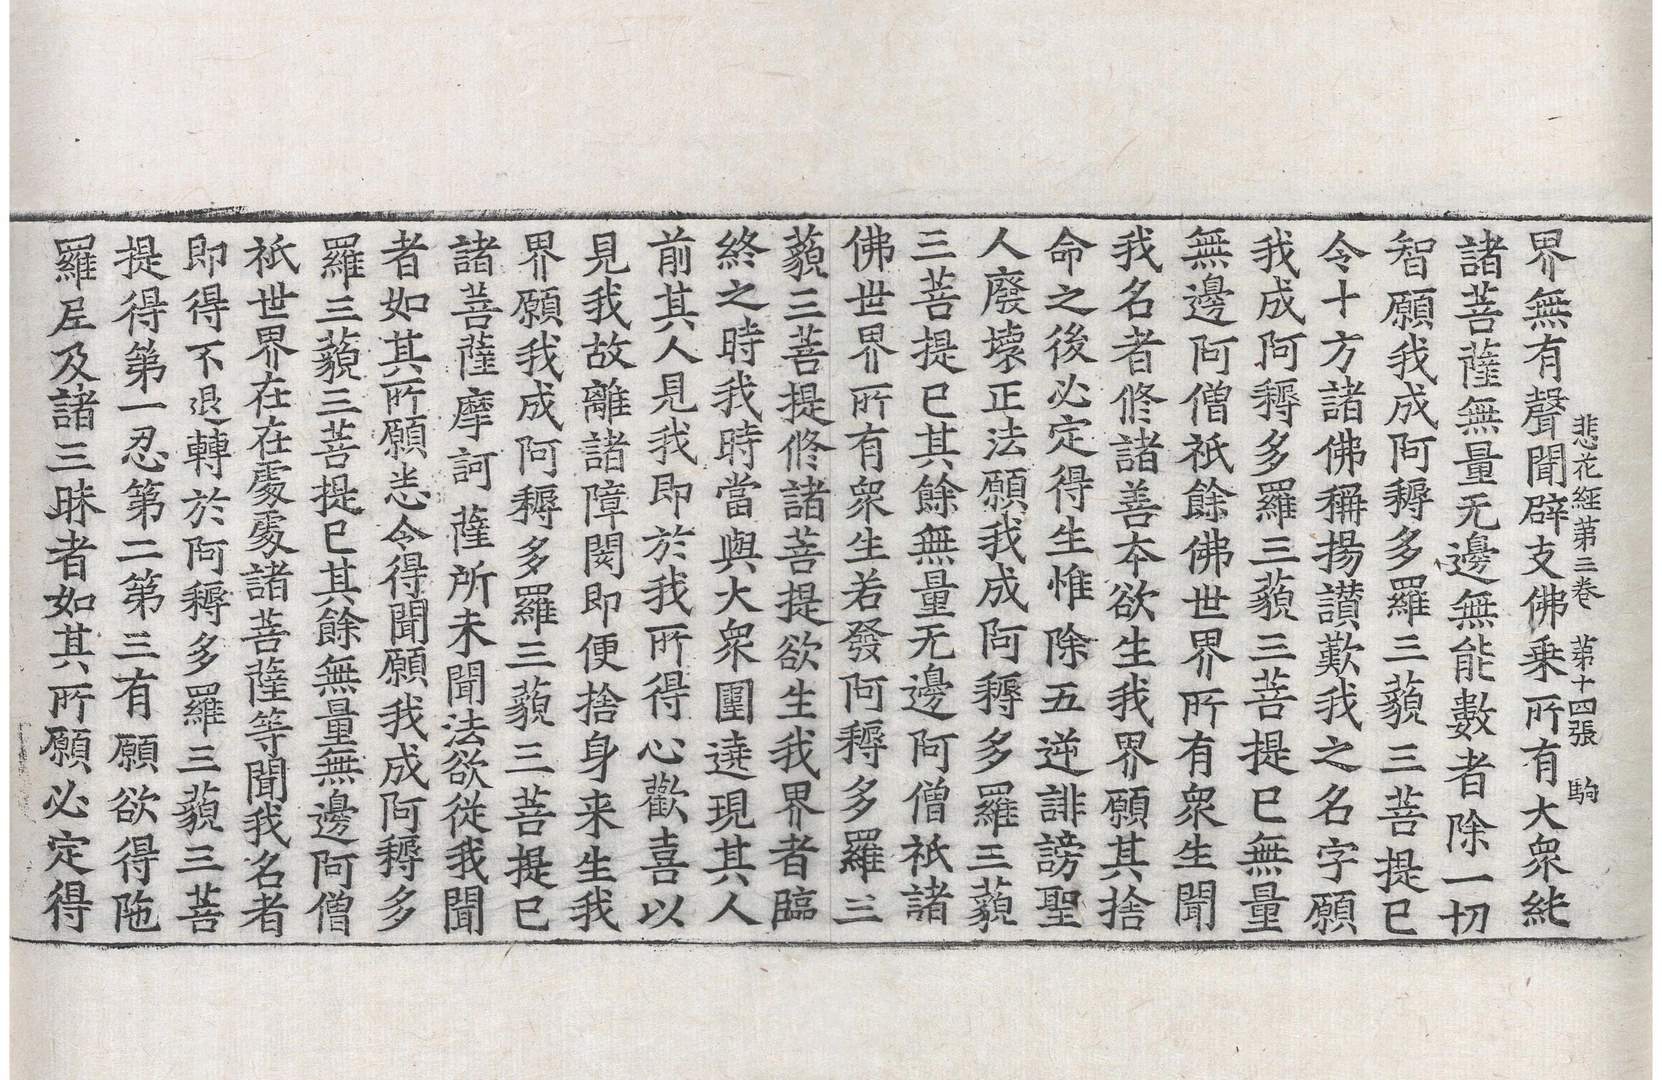 悲花経第三卷 第十四張 駒
界無有聲聞辟支佛乗所有大衆純
諸菩薩無量无邊無能數者除一切
智願我成阿耨多羅三藐三菩提已
令十方諸佛稱揚讃歎我之名字願
我成阿耨多羅三藐三菩提已無量
無邊阿僧祇餘佛世界所有衆生聞
我名者修諸善本欲生我界願其捨
命之後必定得生惟除五逆誹謗聖
人廢壞正法願我成阿耨多羅三藐
三菩提已其餘無量无邊阿僧祇諸
佛世界所有衆生若發阿耨多羅三
藐三菩提修諸菩提欲生我界者臨
終之時我時當與大衆圍遶現其人
前其人見我即於我所得心歡喜以
見我故離諸障閡即便捨身来生我
界願我成阿耨多羅三藐三菩提已
諸菩薩摩訶薩所未聞法欲從我聞
者如其所願悉令得聞願我成阿耨多
羅三藐三菩提已其餘無量無邊阿僧
祇世界在在處處諸菩薩等聞我名者
即得不退轉於阿耨多羅三藐三菩
提得第一忍第二第三有願欲得陁
羅尼及諸三昧者如其所願必定得